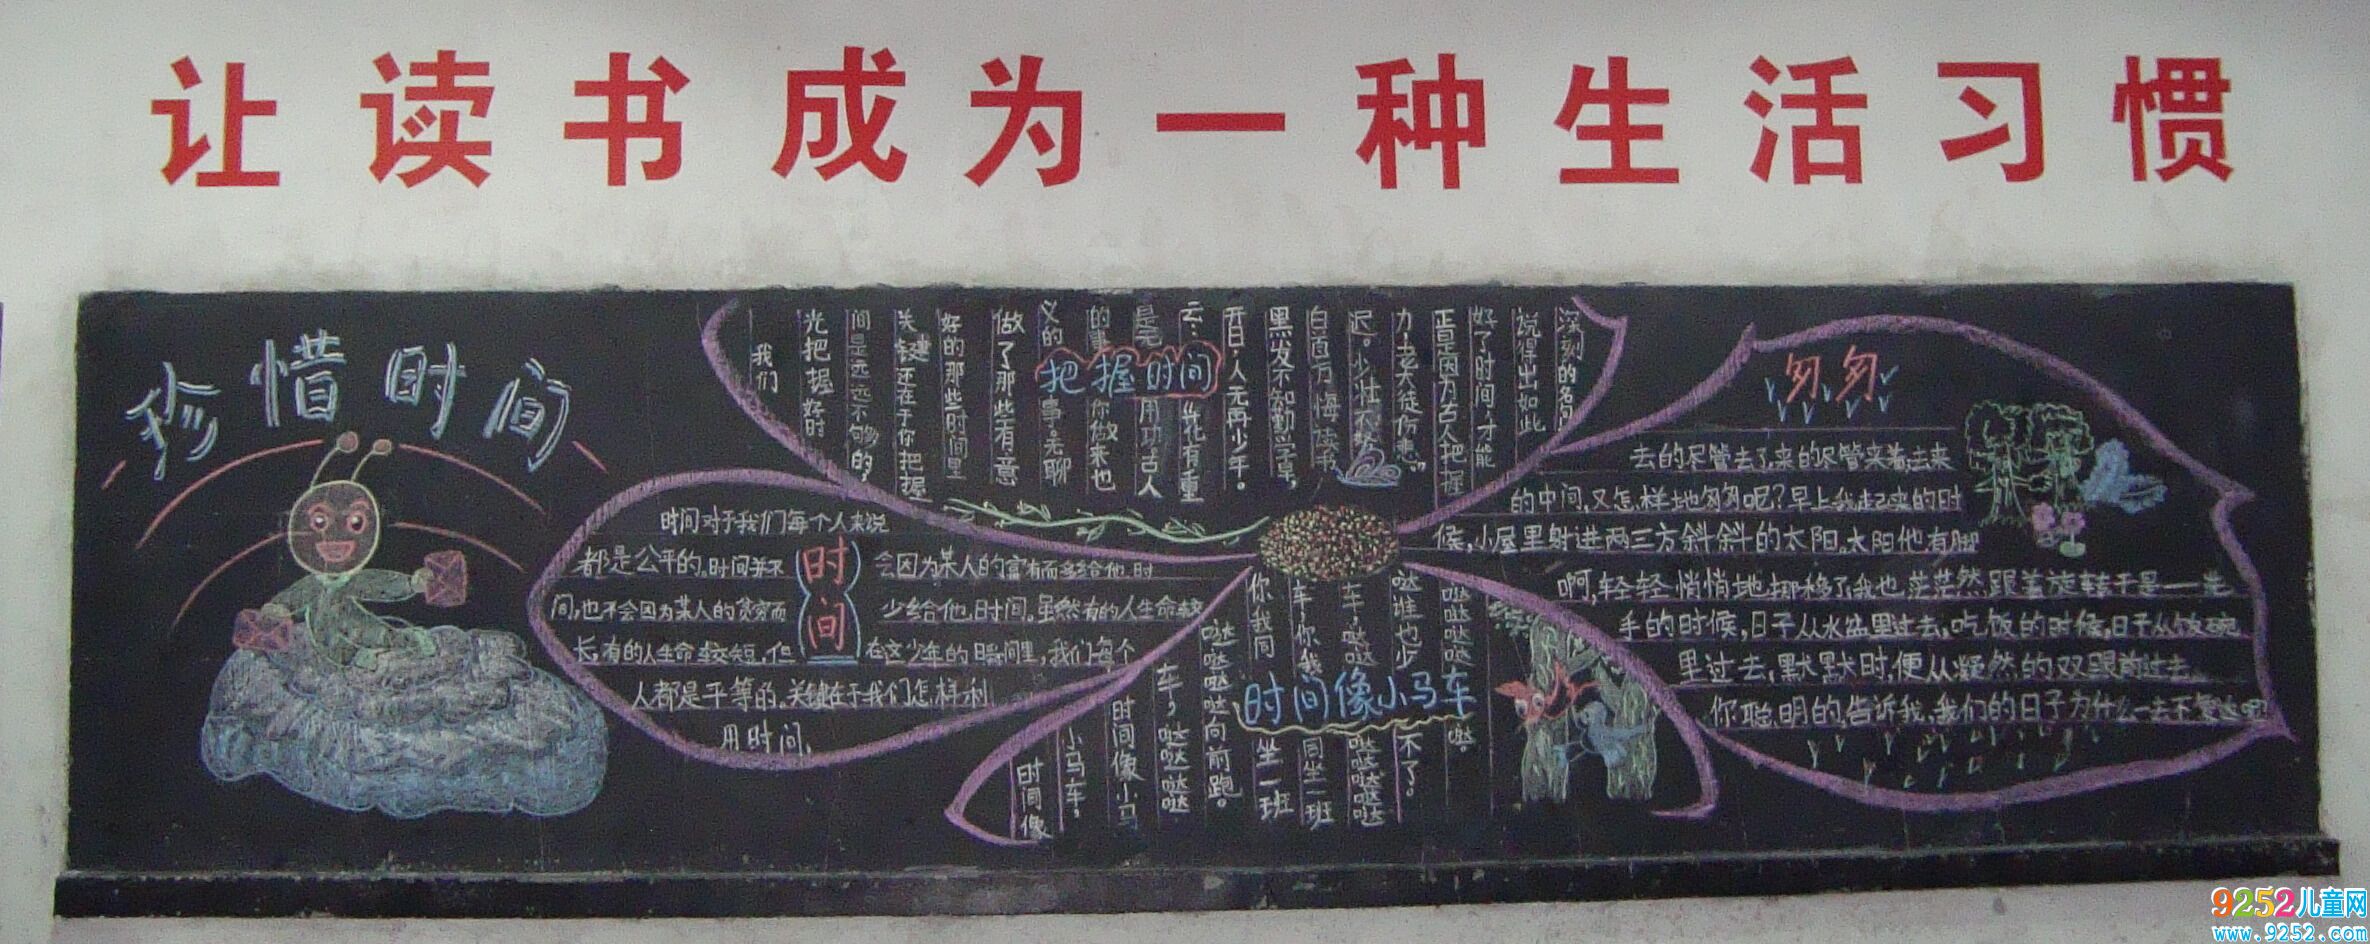 让读书成为一种生活习惯
珍惜时间
把握时间
我们
光把握好时
间是远远不够的,
关键还在于你把握
好的那些时间里
做了那些有意
义的事,无聊
的事你做来也
是无用功。古人
云:“花有重
开日,人无再少年。
黑发不知勤学早,
白首方悔读书
迟。少壮不努
力,老大徒伤悲”
正是因为古人把握
好了时间,才能
说得出如此
深刻的名句
时间
时间对于我们每个人来说
都是公平的。时间并不会因为某人的富有而多给他时
间,也不会因为某人的贫穷而少给他时间。虽然有的人生命较
长,有的人生命较短,但在这少年的日瞬间里,我们每个
人都是平等的。关键在于我们怎样利
用时间,
时间像小马车
时间像
小马车。
时间像小马
车,哒哒哒
哒哒哒哒向前跑。
你我同坐一班
车,你我同坐一班
车,哒哒哒哒
哒谁也少不了。
哒哒哒哒哒。
匆匆
去的尽管去了,来的尽管来着;去来
的中间,又怎样地匆匆呢?早上我起来的时
候,小屋里射进两三方斜斜的太阳。太阳他有脚
啊,轻轻悄悄地挪移了,我也茫茫然跟着旋转于是——洗
手的时候,日子从水盆里过去,吃饭的时候,日子从饭碗
里过去,默默时,便从凝然的双眼前过去。
你聪明的,告诉我,我们的日子为什么一去不复返呢
9252儿童网
www.9252.com